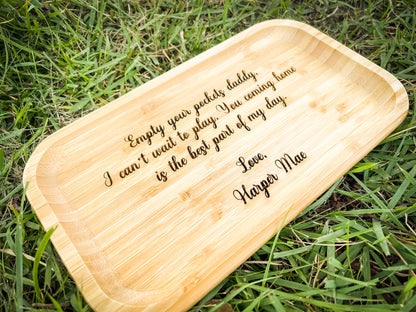 Empty your pockets daddy.
I can't wait to play. You coming home
is the best part of my day.
Love,
Harper Mae